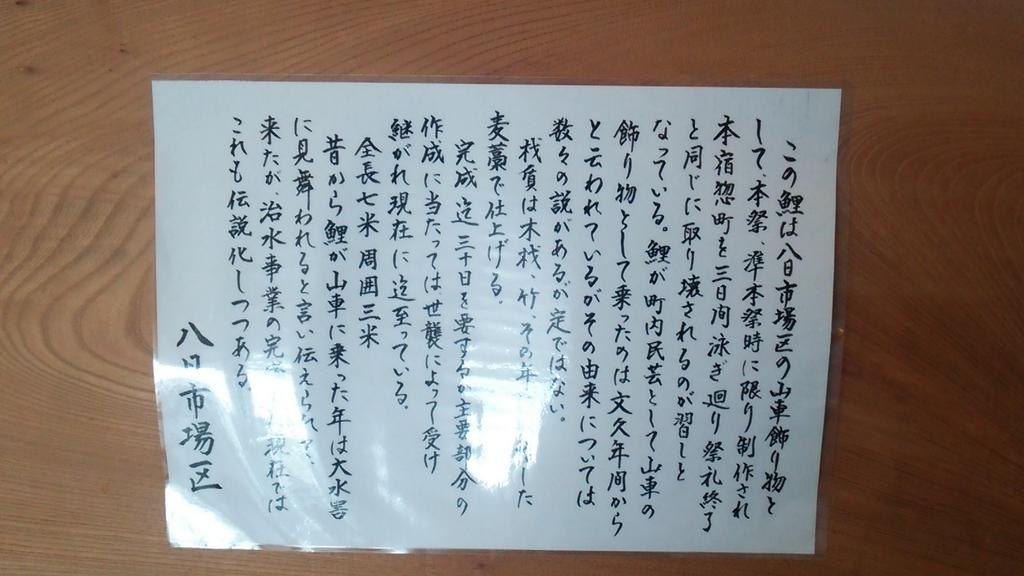 この鯉は八日市場区の山車飾り物と
して、本祭、準本祭時に限り制作され
本宿惣町を三日間泳ぎ廻り祭礼終了
と同じに取り壊されるのが習しと
なっている。鯉が町内民芸として山車の
飾り物として乗ったのは文久年間から
と云われているがその由来については
数々の説があるが定ではない。
材質は木材、竹、その年 した
麦藁で仕上げる。
完成迄三十日を要するが主要部分の
作成に当たっては世襲によって受け
継がれ現在に迄至っている。
全長七米 周囲三米
昔から鯉が山車に乗った年は大水害
に見舞われると言い伝えられて
来たが、治水事業の完 現在では
これも伝説化しつつある
八日市場区